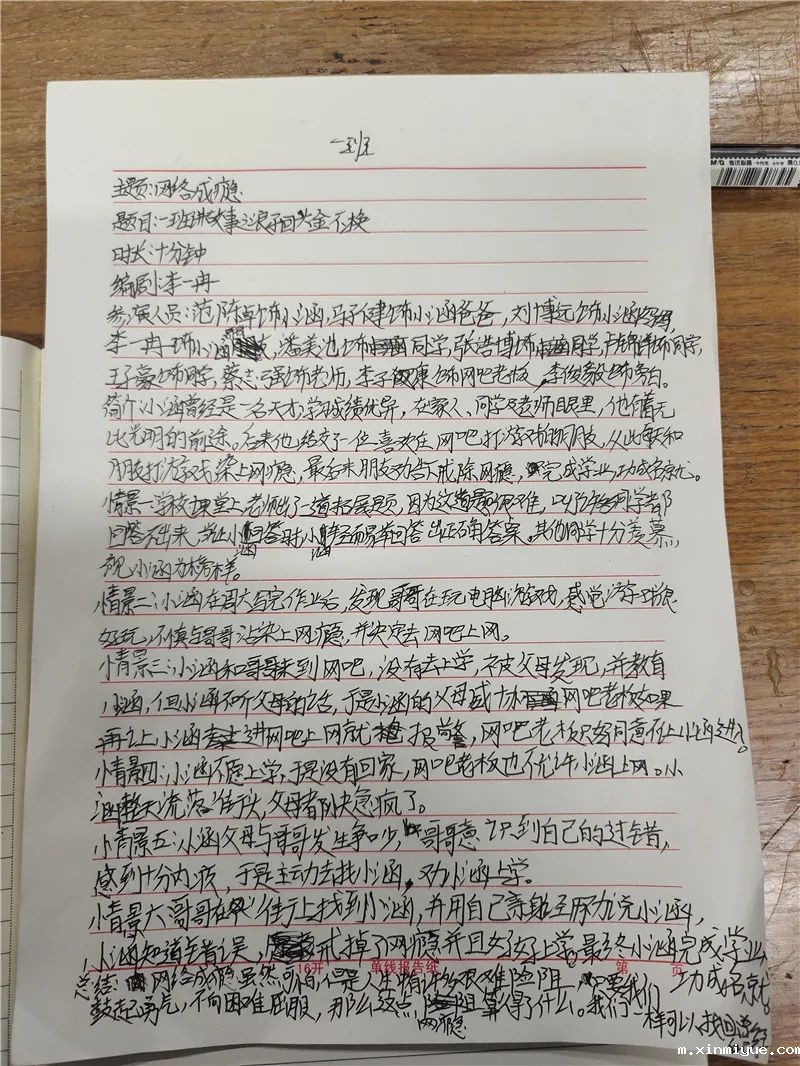 一班
主题:网络成瘾
题目:一班讲故事之浪子回头金不换
时长:十分钟
编剧:李一冉
参演人员:范陈卓饰小涵,马子健饰小涵爸爸,刘博远饰小涵妈妈,
李一冉饰小涵,潘美池饰同学,张浩博饰同学,饰同学,
王子豪饰同学,蔡志强饰老师,李子康饰网吧老板,李俊毅饰旁白。
简介:小涵曾经是一名天才,学习成绩优异,在家人、同学及老师眼里,他有着无
比光明的前途。后来他结交了一位喜欢在网吧打游戏的朋友,从此每天和
朋友打游戏染上网瘾,最后来朋友劝告戒除网瘾,完成学业,功成名就。
情景一:学校课堂上老师出了一道拓展题,因为这道题很难,叫几位同学都
回答不出来,当让小涵回答时小涵轻而易举回答出正确答案。其他同学十分羡慕,
视小涵为榜样。
情景二:小涵在周六写完作业后,发现哥哥在玩电脑游戏,感觉游戏很
好玩,不慎与哥哥沾染上网瘾,并决定去网吧上网。
情景三:小涵和哥哥来到网吧,没有去上学,被父母发现,并教育
小涵,但小涵不听父母的话,于是小涵的父母威胁网吧老板如果
再让小涵进网吧上网就报警,网吧老板只好同意不让小涵进入。
情景四:小涵不愿上学,于是没有回家,网吧老板也不允许小涵上网。小
涵整天流落街头,父母都快急疯了。
情景五:小涵父母与哥哥发生争吵,哥哥意识到自己的过错,
感到十分内疚,于是主动去找小涵,劝小涵上学。
情景六:哥哥在街上找到小涵,并用自己亲身经历劝说小涵,
小涵知道错误,戒掉了网瘾并且好好上学,最终小涵完成学业
功成名就。
16开 单线报告纸 第 页
总结:网络成瘾虽然可怕,但是人生有许多艰难险阻,只要我们
鼓起勇气,不向困难屈服,那么这点网瘾算得了什么。我们一样可以找回
m.xinmiyue.com